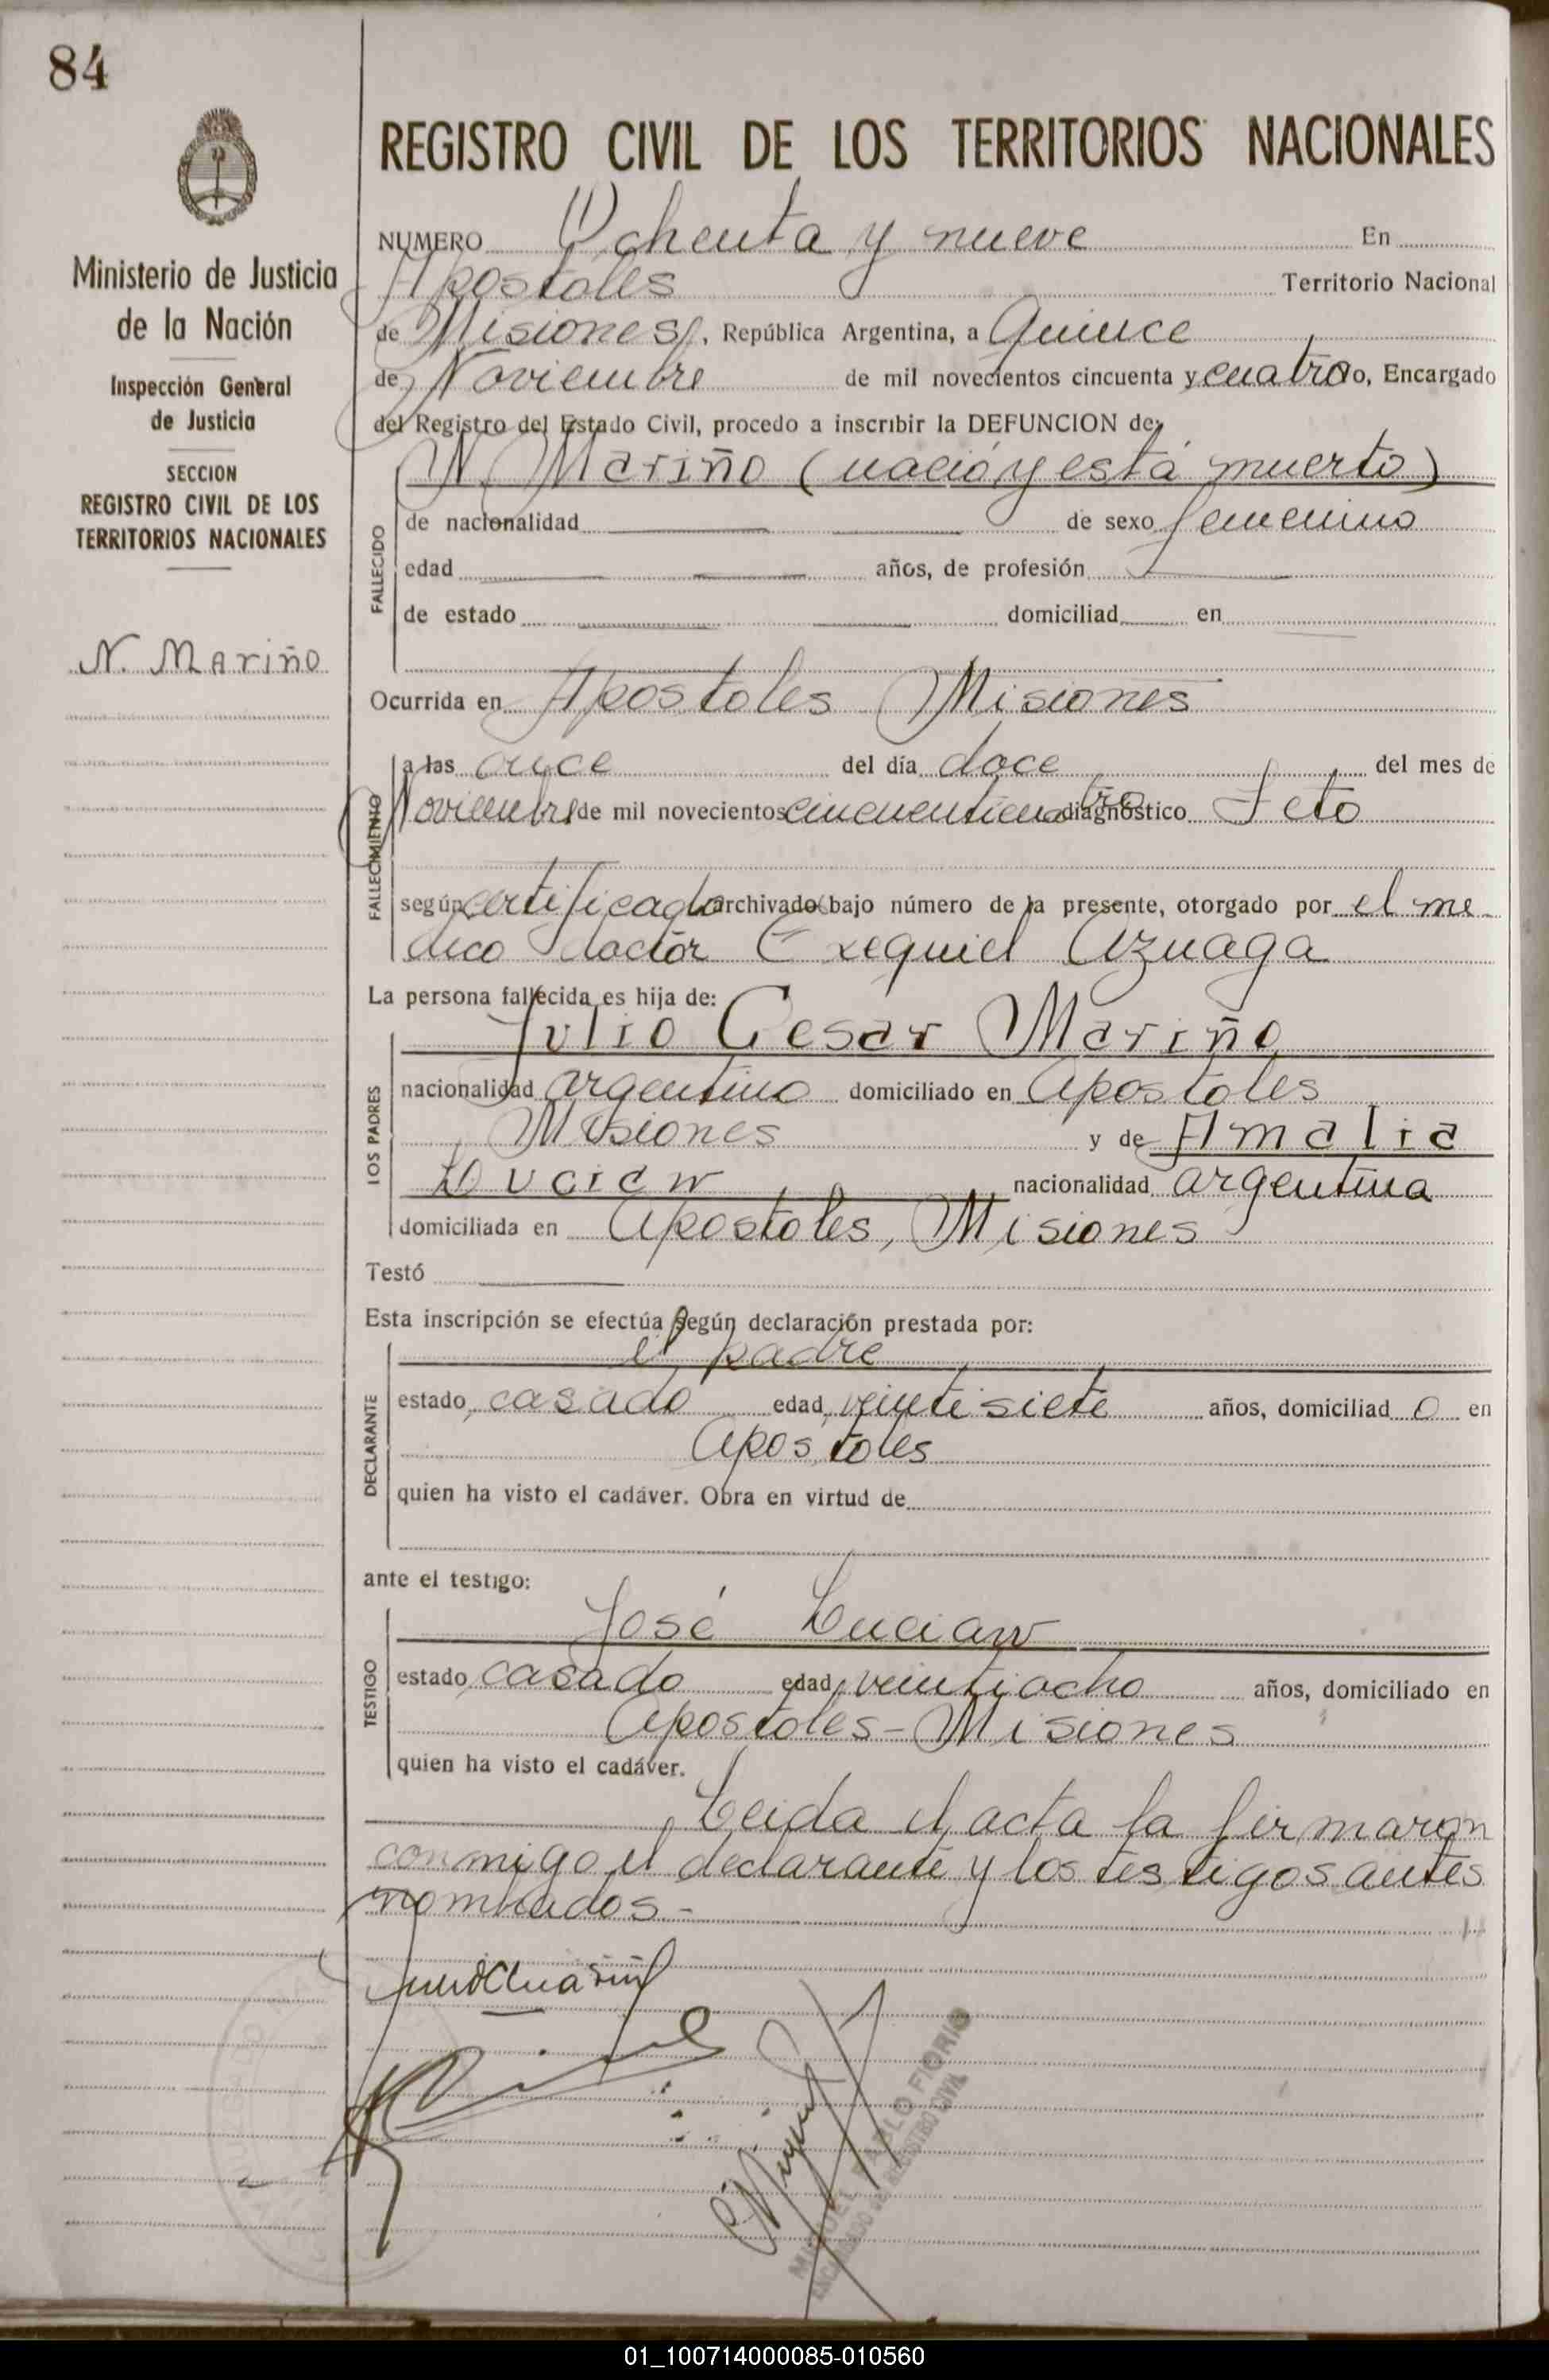 84
REGISTRO CIVIL DE LOS TERRITORIOS NACIONALES
Ministerio de Justicia
de la Nación
Inspección General
de Justicia
SECCION
REGISTRO CIVIL DE LOS
TERRITORIOS NACIONALES
N. Mariño
NUMERO Ochenta y nueve En
Apostoles Territorio Nacional
de Misiones, República Argentina, a Quince
de Noviembre de mil novecientos cincuenta y cuatro yo, Encargado
del Registro del Estado Civil, procedo a inscribir la DEFUNCION de:
N. Mariño (nació y está muerto)
FALLECIDO
de nacionalidad de sexo femenino
edad años, de profesión
de estado domiciliad en
Ocurrida en Apostoles Misiones
FALLECIMIENTO
a las once del día doce del mes de
Noviembre de mil novecientos cincuenticuatro diagnóstico Feto
según certificado archivado bajo número de la presente, otorgado por el me-
dico doctor Exequiel Azuaga
La persona fallecida es hija de:
LOS PADRES
Julio Cesar Mariño
nacionalidad argentino domiciliado en Apostoles
Misiones y de Amalia
Luciew nacionalidad argentina
domiciliada en Apostoles, Misiones
Testó
Esta inscripción se efectúa según declaración prestada por:
DECLARANTE
el padre
estado casado edad veintisiete años, domiciliad o en
Apostoles
quien ha visto el cadáver. Obra en virtud de
ante el testigo:
TESTIGO
José Luciaw
estado casado edad veintiocho años, domiciliado en
Apostoles - Misiones
quien ha visto el cadáver.
Leida el acta la firmaron
conmigo el declarante y los testigos antes
nombrados -
MIGUEL PABLO FIORIO
ENCARGADO DE REGISTRO CIVIL
01_100714000085-010560